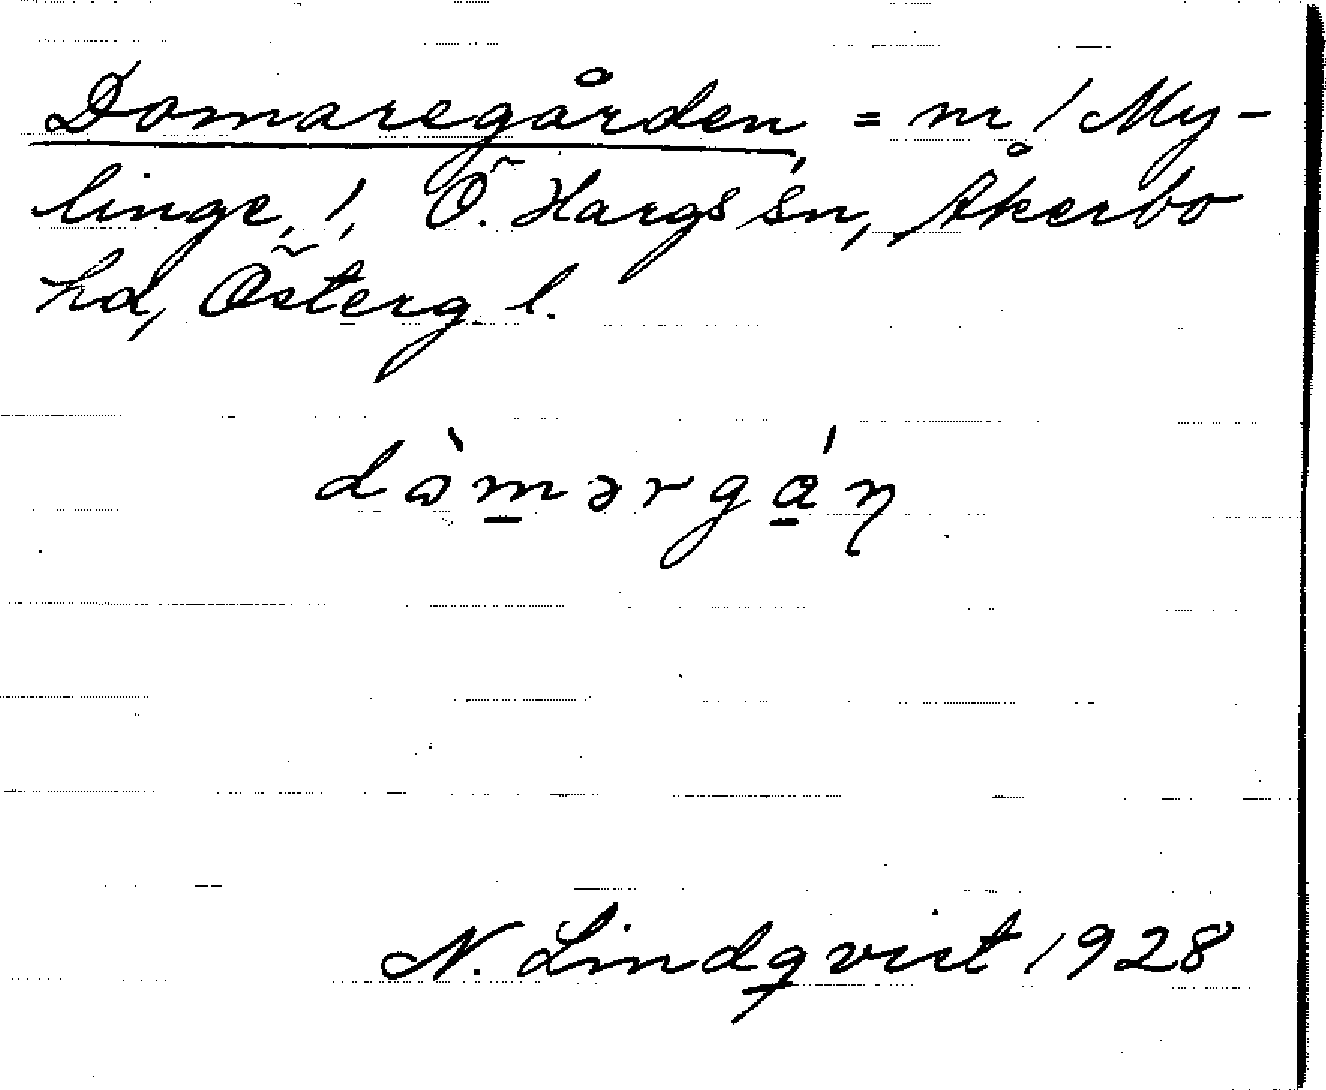 Domaregården, = nr 1 My-
linge, !, Ö. Hargs sn, Åkerbo
hd, Österg. l.
dɷ̀m̠ərgá̠ɳ
N. Lindqvist 1928